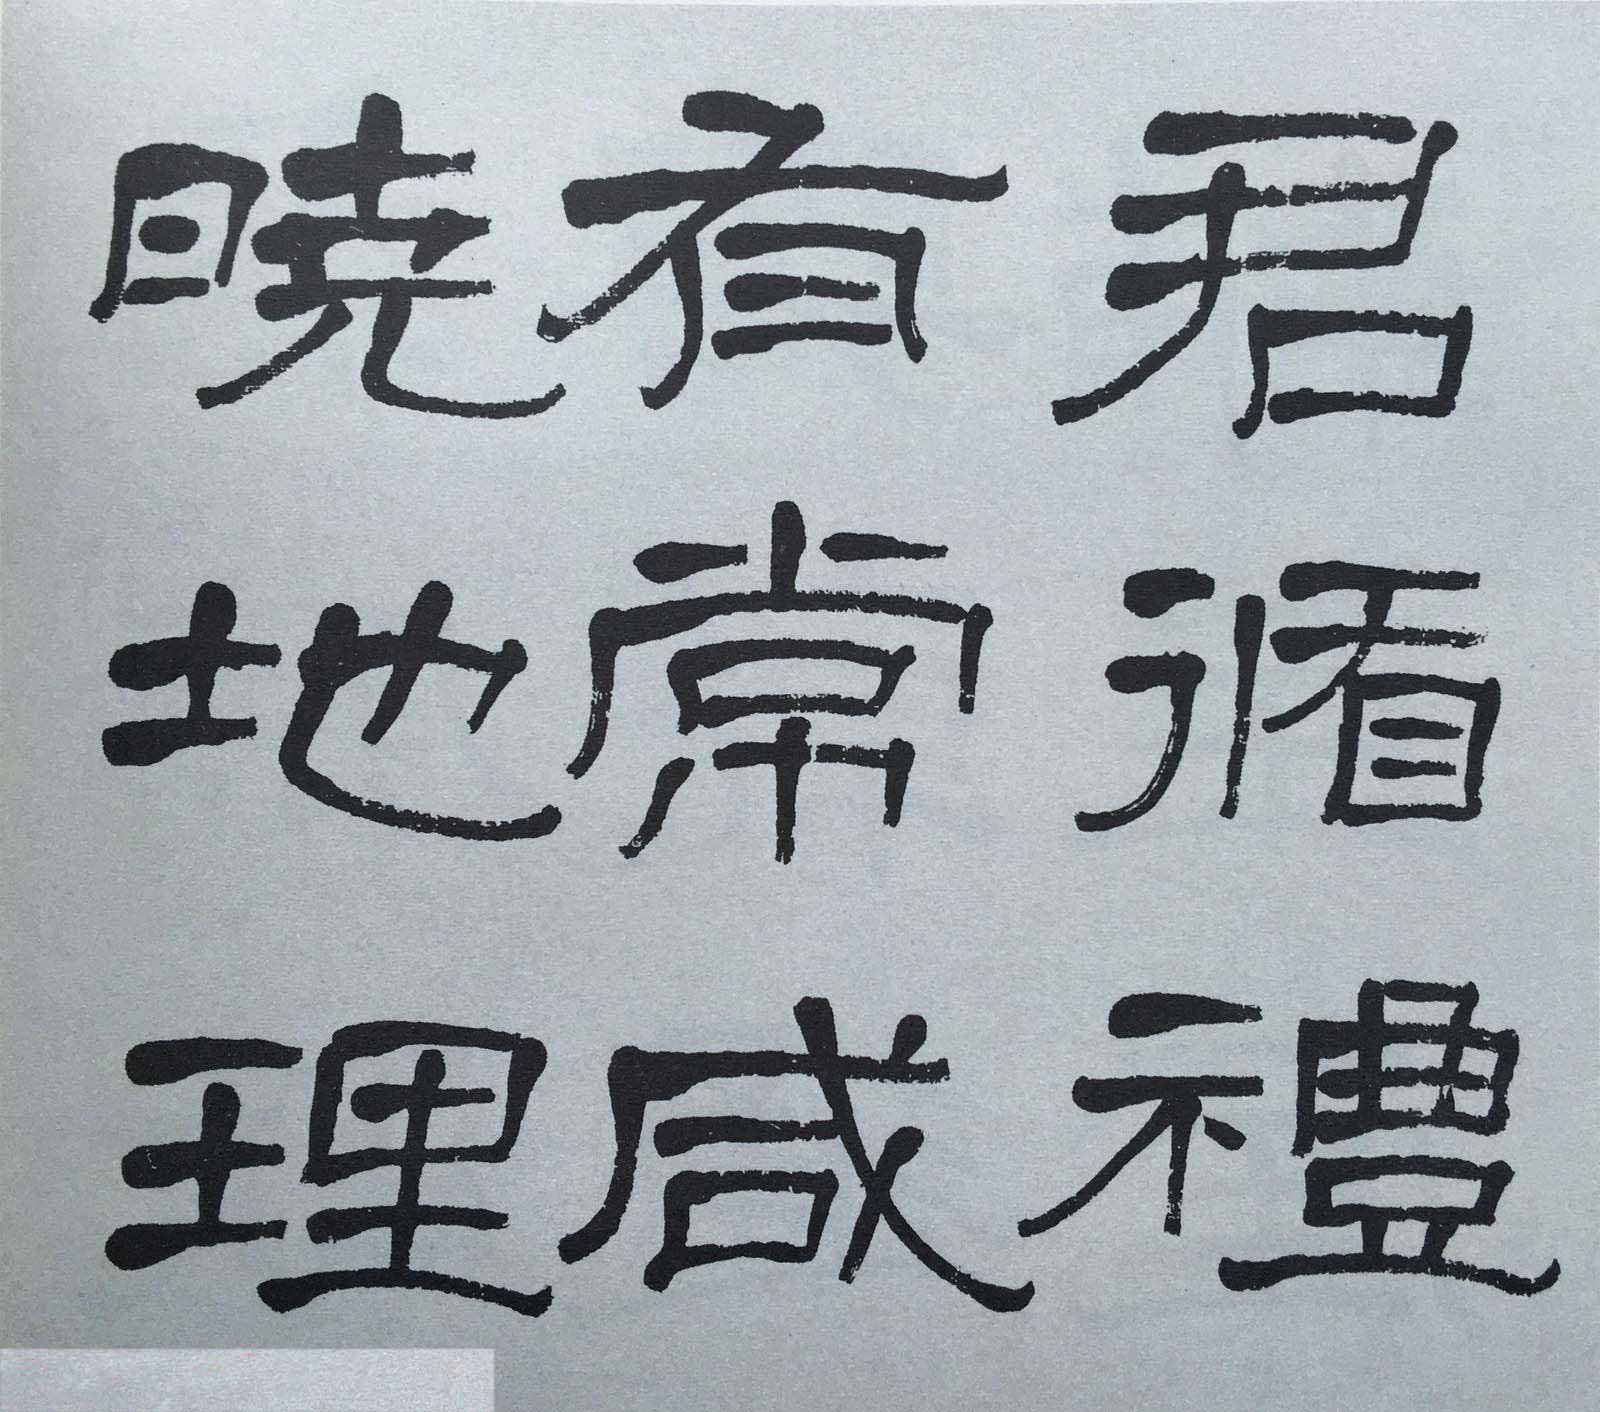 君循禮
有常咸
曉地理